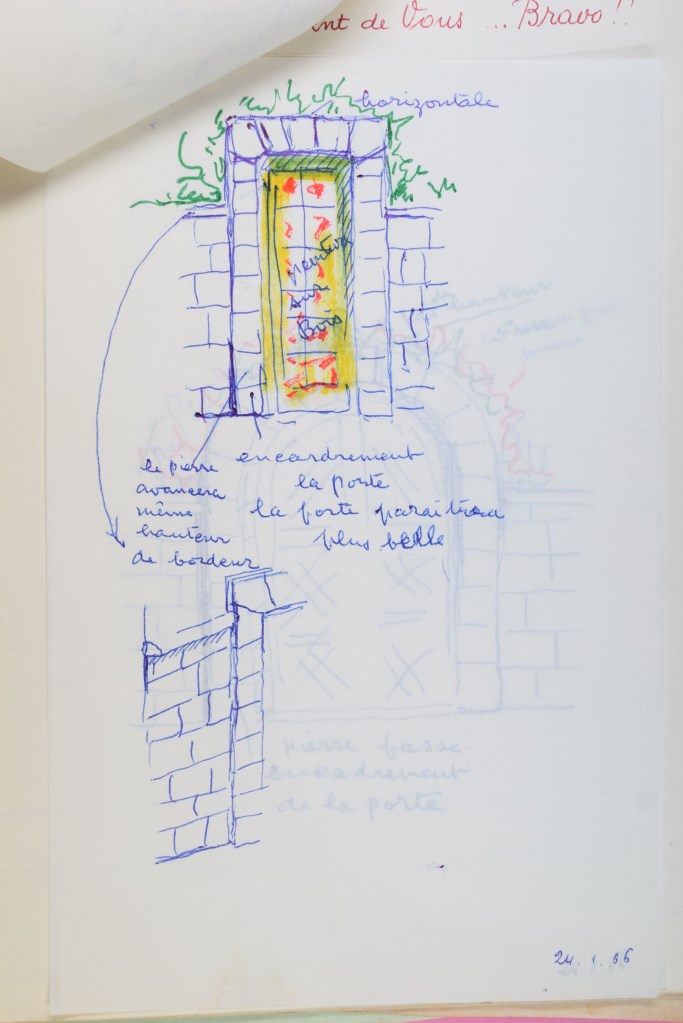 nt de Vous ... Bravo !!
horizontale
peinture
sur
Bois
le pierre
avancera
même
hauteur
de bordeur
encardrement
la porte
la porte paraitrea
plus belle
pierre fasse
encadrement
de la porte
24. 1. 66